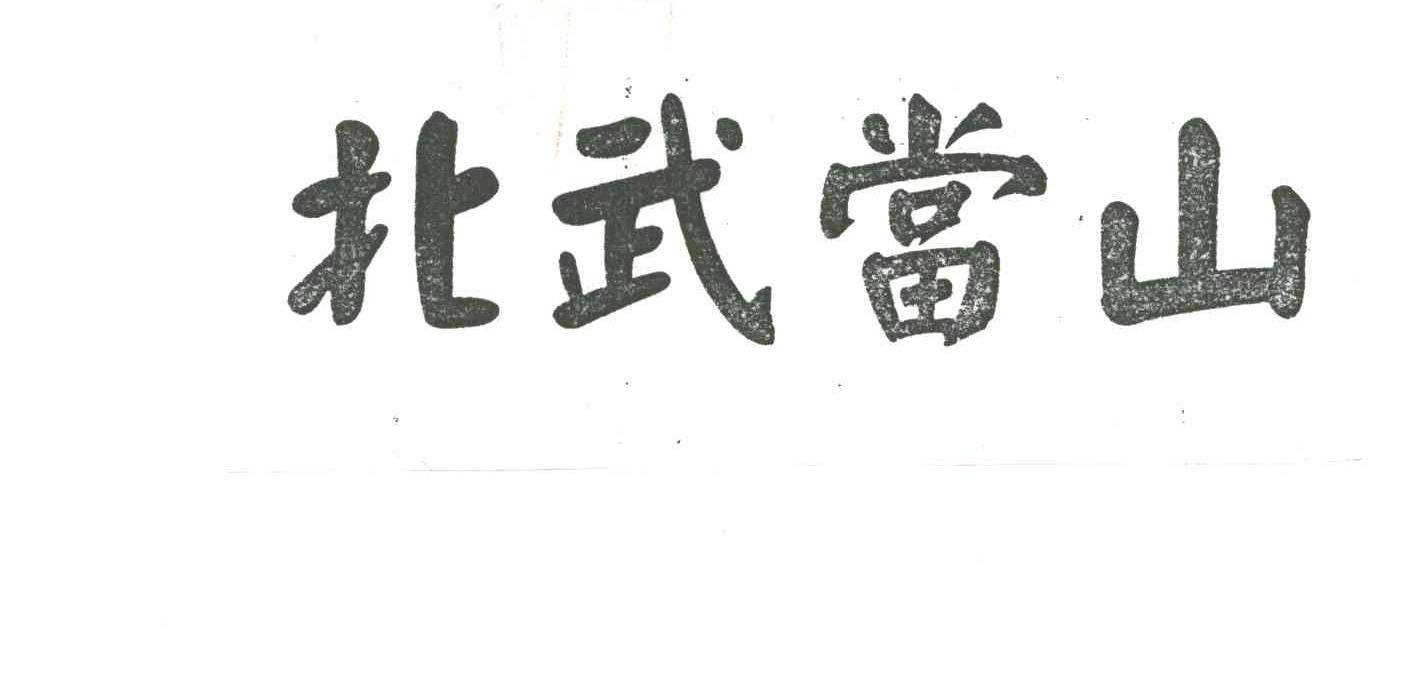 北武當山